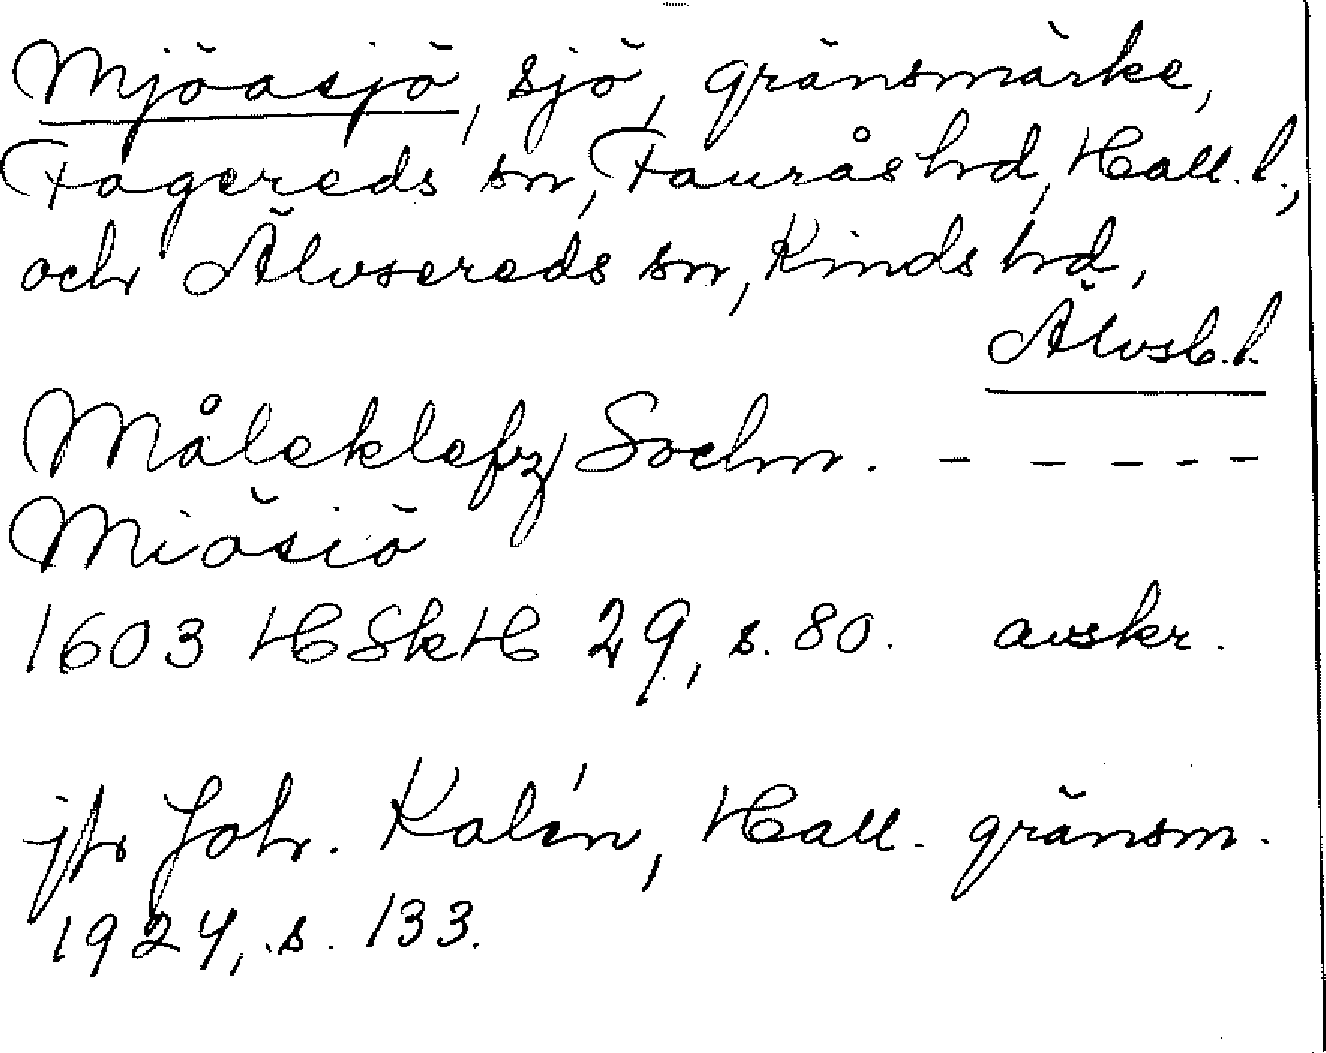 Mjöasjö, sjö, gränsmärke,
Fagereds sn, Faurås hd, Hall. l.,
och Älvsereds sn, Kinds hd,
Älvsb. l.
Måleklefz Sochn. - - - - -
Miösiö
1603 HSkH 29, s. 80. avskr.
jfr Joh. Kalén, Hall. gränsm.
1924, s. 133.